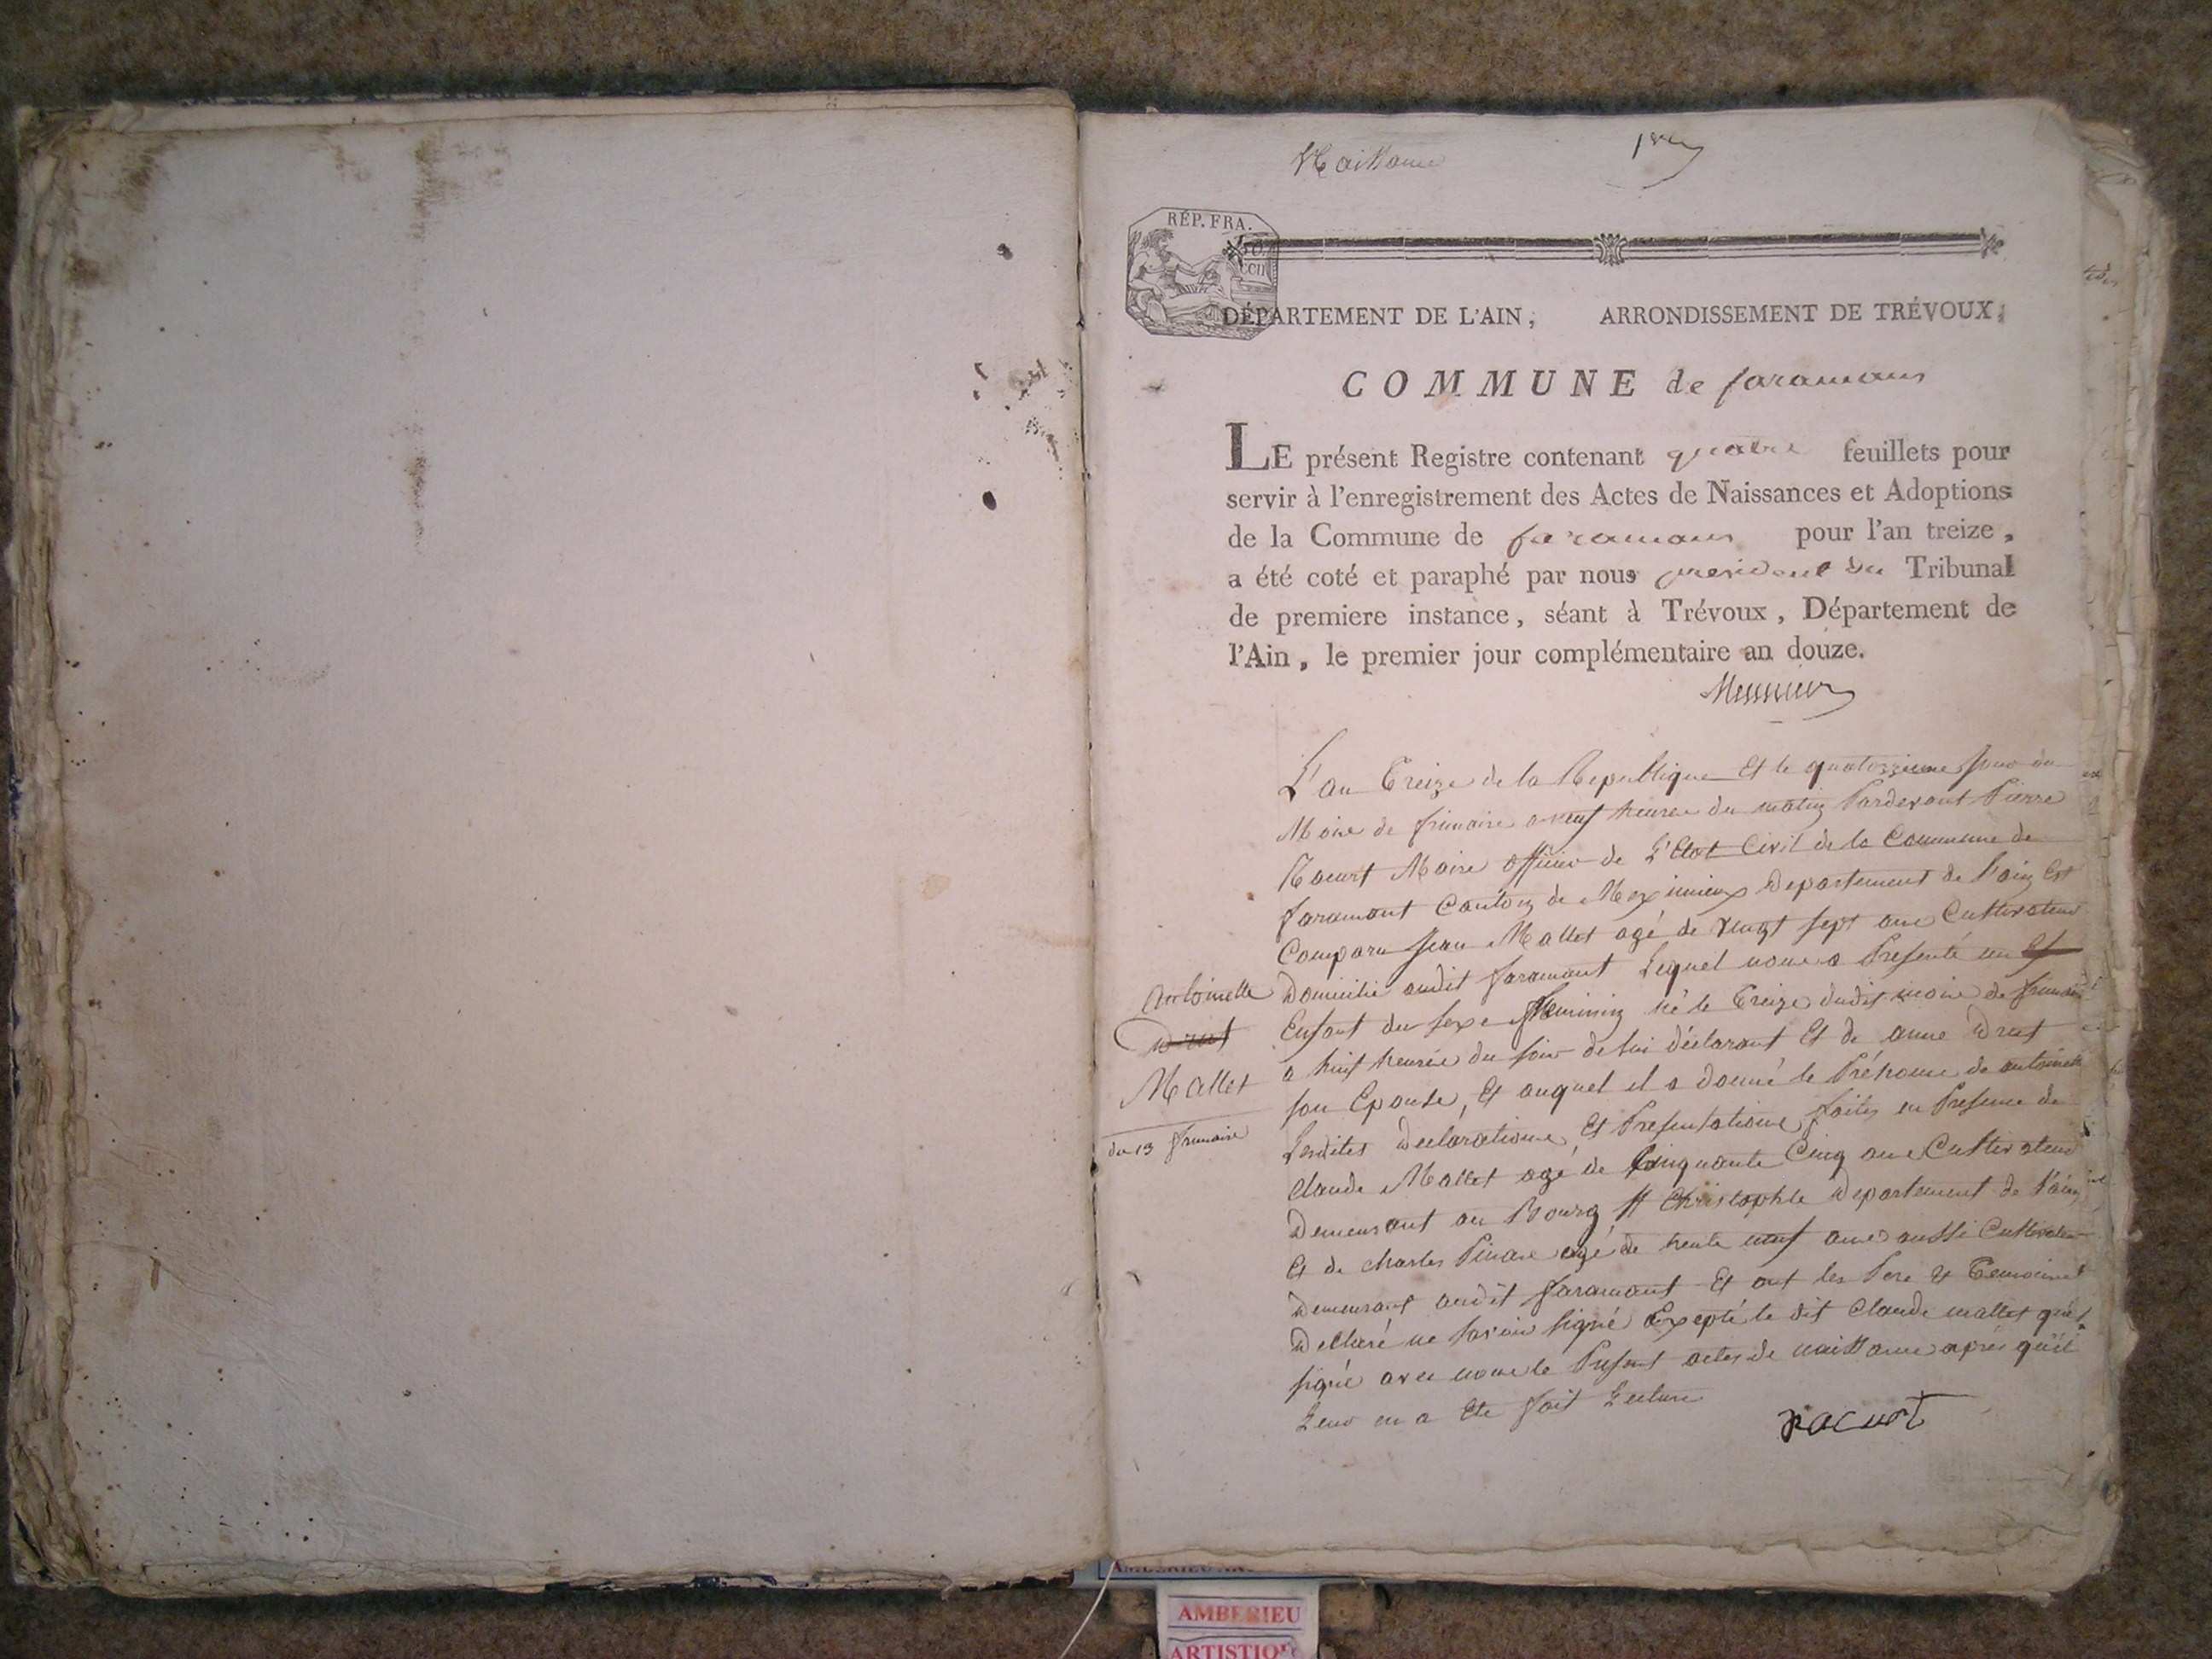 Naissance
1er
RÉP. FRA.
DÉPARTEMENT DE L'AIN, ARRONDISSEMENT DE TRÉVOUX,
COMMUNE de faramans
LE présent Registre contenant quatre feuillets pour
servir à l'enregistrement des Actes de Naissances et Adoptions
de la Commune de faramans pour l'an treize,
a été coté et paraphé par nous president du Tribunal
de premiere instance, séant à Trévoux, Département de
l'Ain, le premier jour complémentaire an douze.
L'an Treize de la Republique Et le quatorzieme jour du
Mois de frimaire a neuf heures du matin Pardevant Pierre
Maire officier de L'Etat Civil de la Commune de
faramant Canton de Meximieux Departement de l'ain Est
Comparu Jean Mallet agé de vingt sept ans Cultivateur
Domicilié audit faramant Lequel nous a Presenté un
Enfant du sexe feminin né le Treize dudit mois de frimaire
a huit heures du soir de lui déclarant Et de anne Drut
son Epouse, Et auquel il a donné le Prénom de antoinette
Lesdites Declarations Et Presentations faites en Presence de
Claude Mallet agé de Cinquante Cinq ans Cultivateur
Demeurant au Bourg St Christophle Departement de l'ain
Et de charles Pinare agé de trente neuf ans aussi Cultivateur
Demeurant audit faramant Et ont les Pere & Temoins
Declaré ne savoir signé Excepté le dit Claude mallet qui a
signé avec nous le Present actes de naissance apres qu'il
Leur en a Eté fait Lecture
Antoinette
Drut
Mallet
du 13 frimaire
AMBERIEU
AMBERIEU